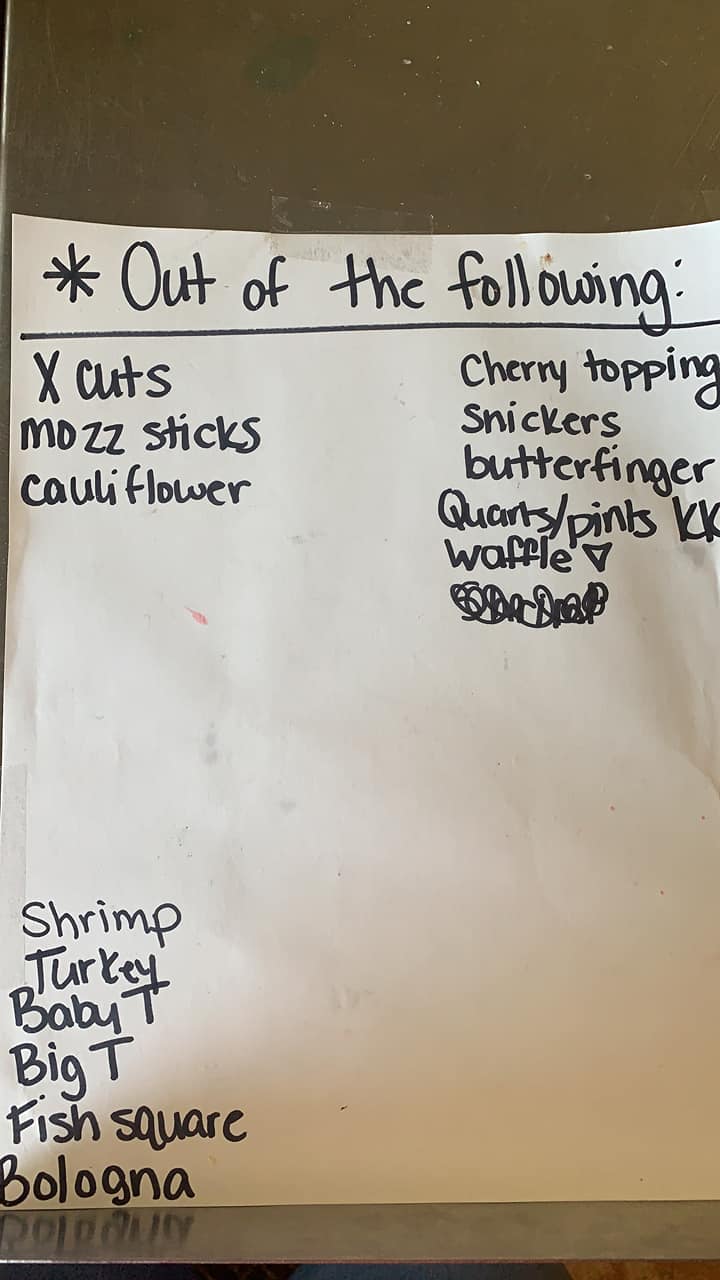 * Out of the following:
X cuts
mozz sticks
cauliflower
Cherry topping
Snickers
butterfinger
Quarts/pints KK
waffle ▽
Shrimp
Turkey
Baby T
Big T
Fish square
Bologna